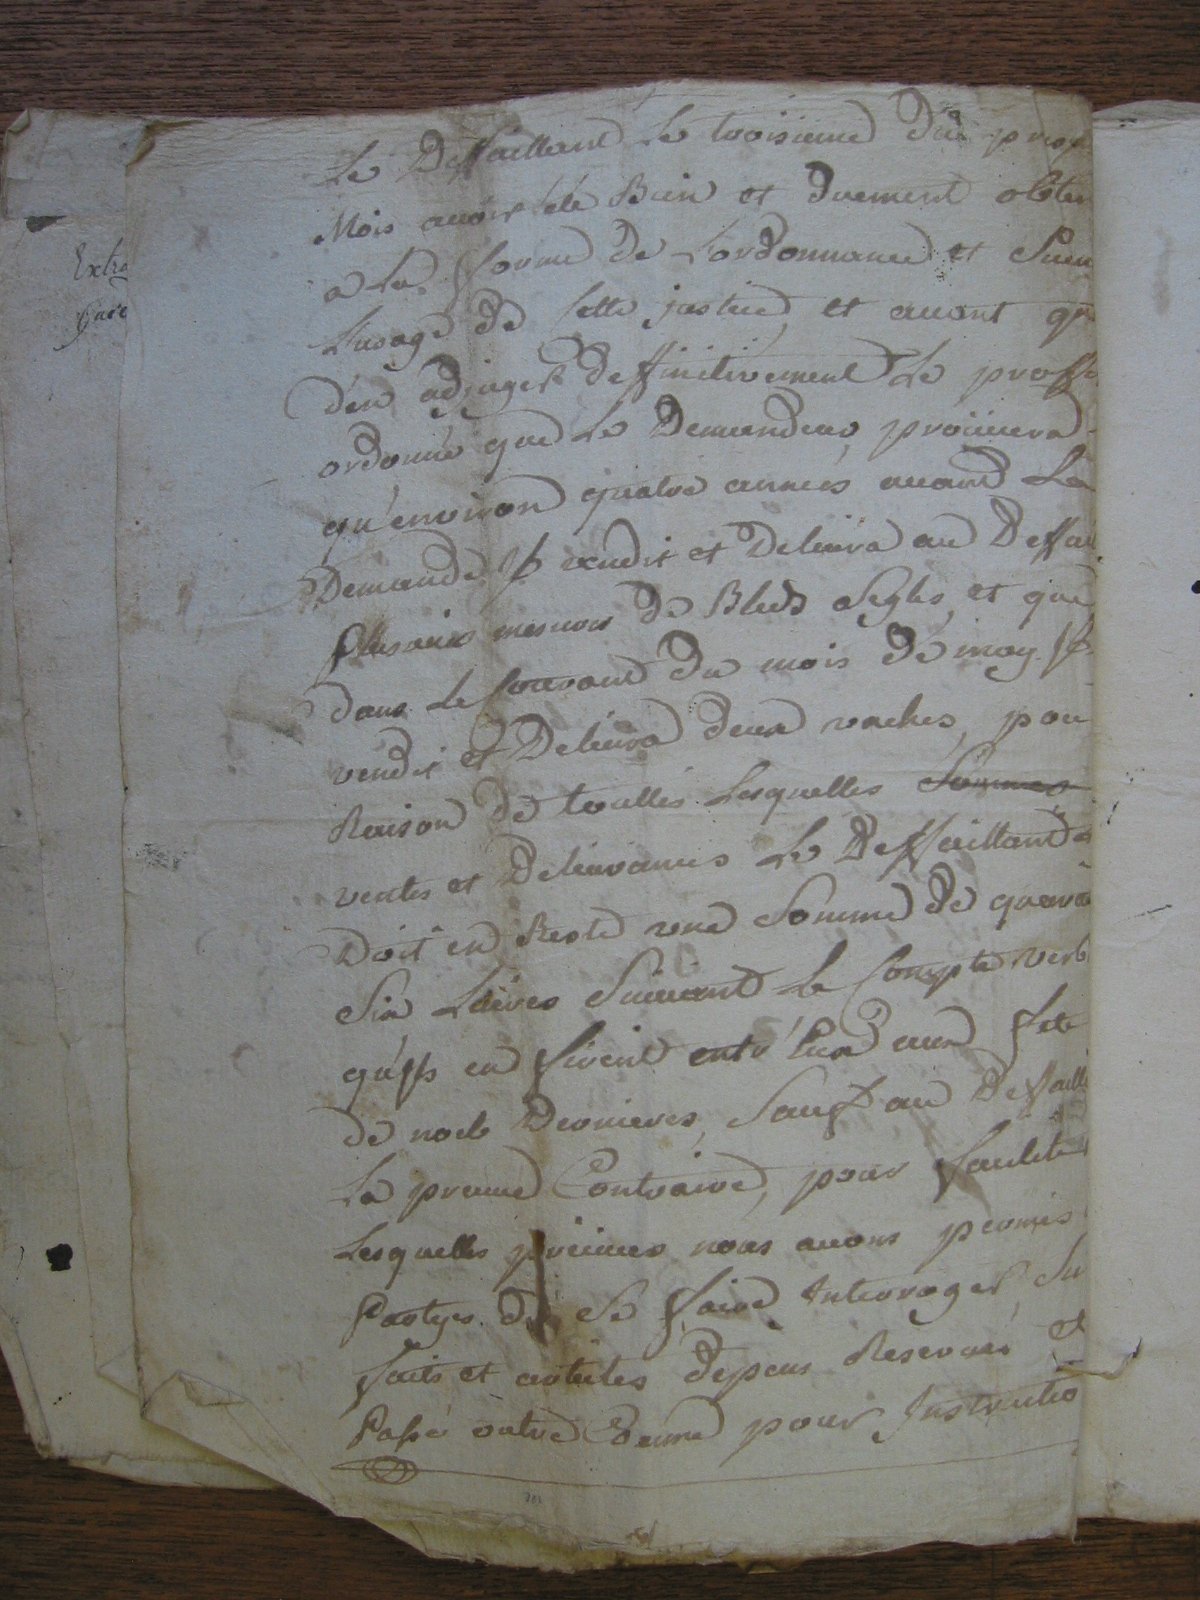 Le Deffaillant Le troisieme du pres
Mois avoir été Bien et duement obten
a La forme de Lordonnance et Suiu
Lusage de Cette justice, et auant qu
d'en adjuger deffinitivement Le proffi
ordonné que Le Demandeur prouuera
qu'environ quatre années auant La
Demande Il vendit et Deliura au Deffai
plusieurs mesures de Bled Segles, et que
dans Le Courant du mois de may Il
vendit et Deliura deux vaches, pou
Raison de touttes Lesquelles Sommes
ventes et Deliurances Le Deffaillant
Doit en Reste une Somme de quara
Six Liures Suiuant Le Compte verb
qu'Ils en firent entr'eux aux fete
de noel Dernieres, Sauf au Deffailla
La preuue Contraire, pour faulité
Lesquelles preuues nous auons permis
Partyes de Se faire Interroger Su
faits et articles depens Reservés et
Passé outre Comme pour Instructio
Extra